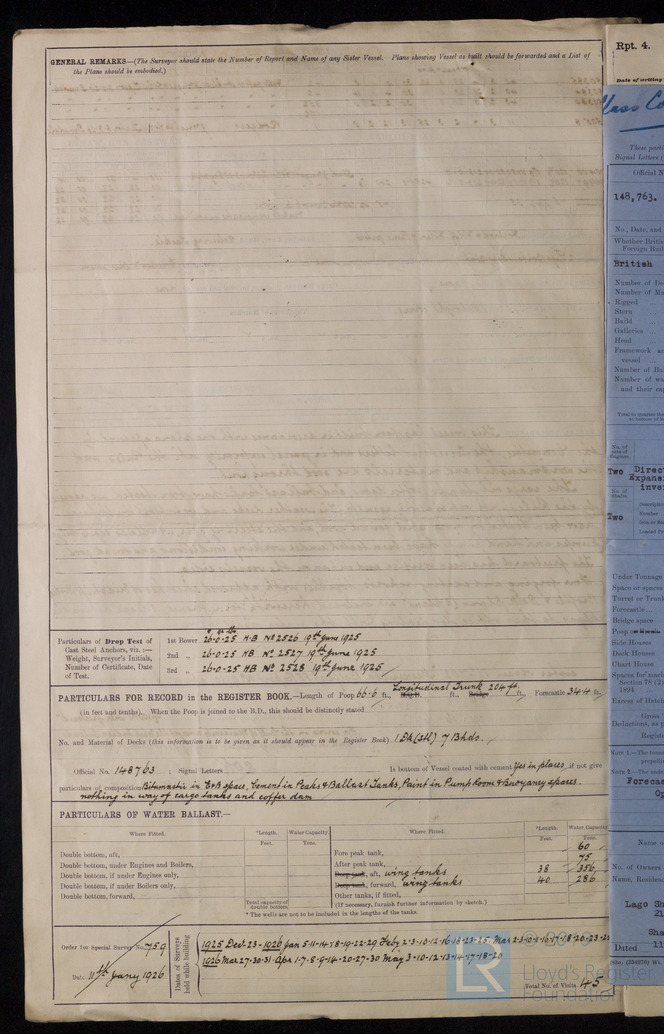 GENERAL REMARKS—(The Surveyor should state the Number of Report and Name of any Sister Vessel. Plans shewing Vessel as built should be forwarded and a List of
the Plans should be embodied.)
Particulars of Drop Test of
Cast Steel Anchors, viz.:—
Weight, Surveyor's Initials,
Number of Certificate, Date
of Test.
1st Bower 26-0-25 H.B Nº 2526 19th June 1925
2nd „ 26-0-25 HB Nº 2527 19th June 1925
3rd „ 26-0-25 HB Nº 2528 19th June 1925
PARTICULARS FOR RECORD in the REGISTER BOOK.—Length of Poop 66.6 ft., Longitudinal Trunk 204 ft., Bridge ft., Forecastle 34.4 ft.
(in feet and tenths). When the Poop is joined to the B.D., this should be distinctly stated
No. and Material of Decks (this information is to be given as it should appear in the Register Book). 1 Dk (stl) 7 Bhds.
Official No. 148763 ; Signal Letters Is bottom of Vessel coated with cement Yes in places, if not give
particulars of composition Bitumastic in E&B space, Cement in Peaks & Ballast Tanks, Paint in Pump Room & Buoyancy spaces.
nothing in way of cargo tanks and coffer dam
PARTICULARS OF WATER BALLAST.—
Where Fitted. *Length. Water Capacity. Where Fitted. *Length. Water Capacity
Feet. Tons. Feet. Tons.
Double bottom, aft,
Double bottom, under Engines and Boilers,
Double bottom, if under Engines only,
Double bottom, if under Boilers only,
Double bottom, forward,
Total capacity of double bottom
Fore peak tank, 60
After peak tank, 75
Deep tank, aft, wing tanks 38 356
Deep tank, forward, wing tanks 40 286
Other tanks, if fitted,
(If necessary, furnish further information by sketch.)
* The wells are not to be included in the lengths of the tanks.
Order for Special Survey No. 759
Date 11th Jany 1926
Dates of Surveys
held while building
1925 Dec. 23 - 1926 Jan 5-11-14-18-19-22-29 Feby 2-3-10-12-16-18-23-25. Mar 2-3-10-
1926 Mar 27-30-31 Apr 1-7-8-9-14-20-27-30 May 3-10-12-13-14-17-18-20
Total No. of Visits 45
Lloyd's Register
Foundation
Rpt. 4.
Date of writing
Class Co
These parti
Signal Letters (
Official N
148,763.
No., Date, and
Whether Briti
Foreign Buil
British
Number of De
Number of Ma
Rigged
Stern
Build
Galleries
Head
Framework an
vessel
Number of Bu
Number of wa
and their cap
Two
Direc
Expans
inver
Two
Under Tonnage
Space or spaces
Turret or Trunk
Forecastle
Bridge space
Poop
Side Houses
Deck Houses
Chart House
Spaces for mach
Section 78 (2)
1894
Excess of Hatch
Gross
Deductions, as p
Registe
Forecas
Name o
No. of Owners
Name, Residen
Lago Sh
21
Sha
Dated 11